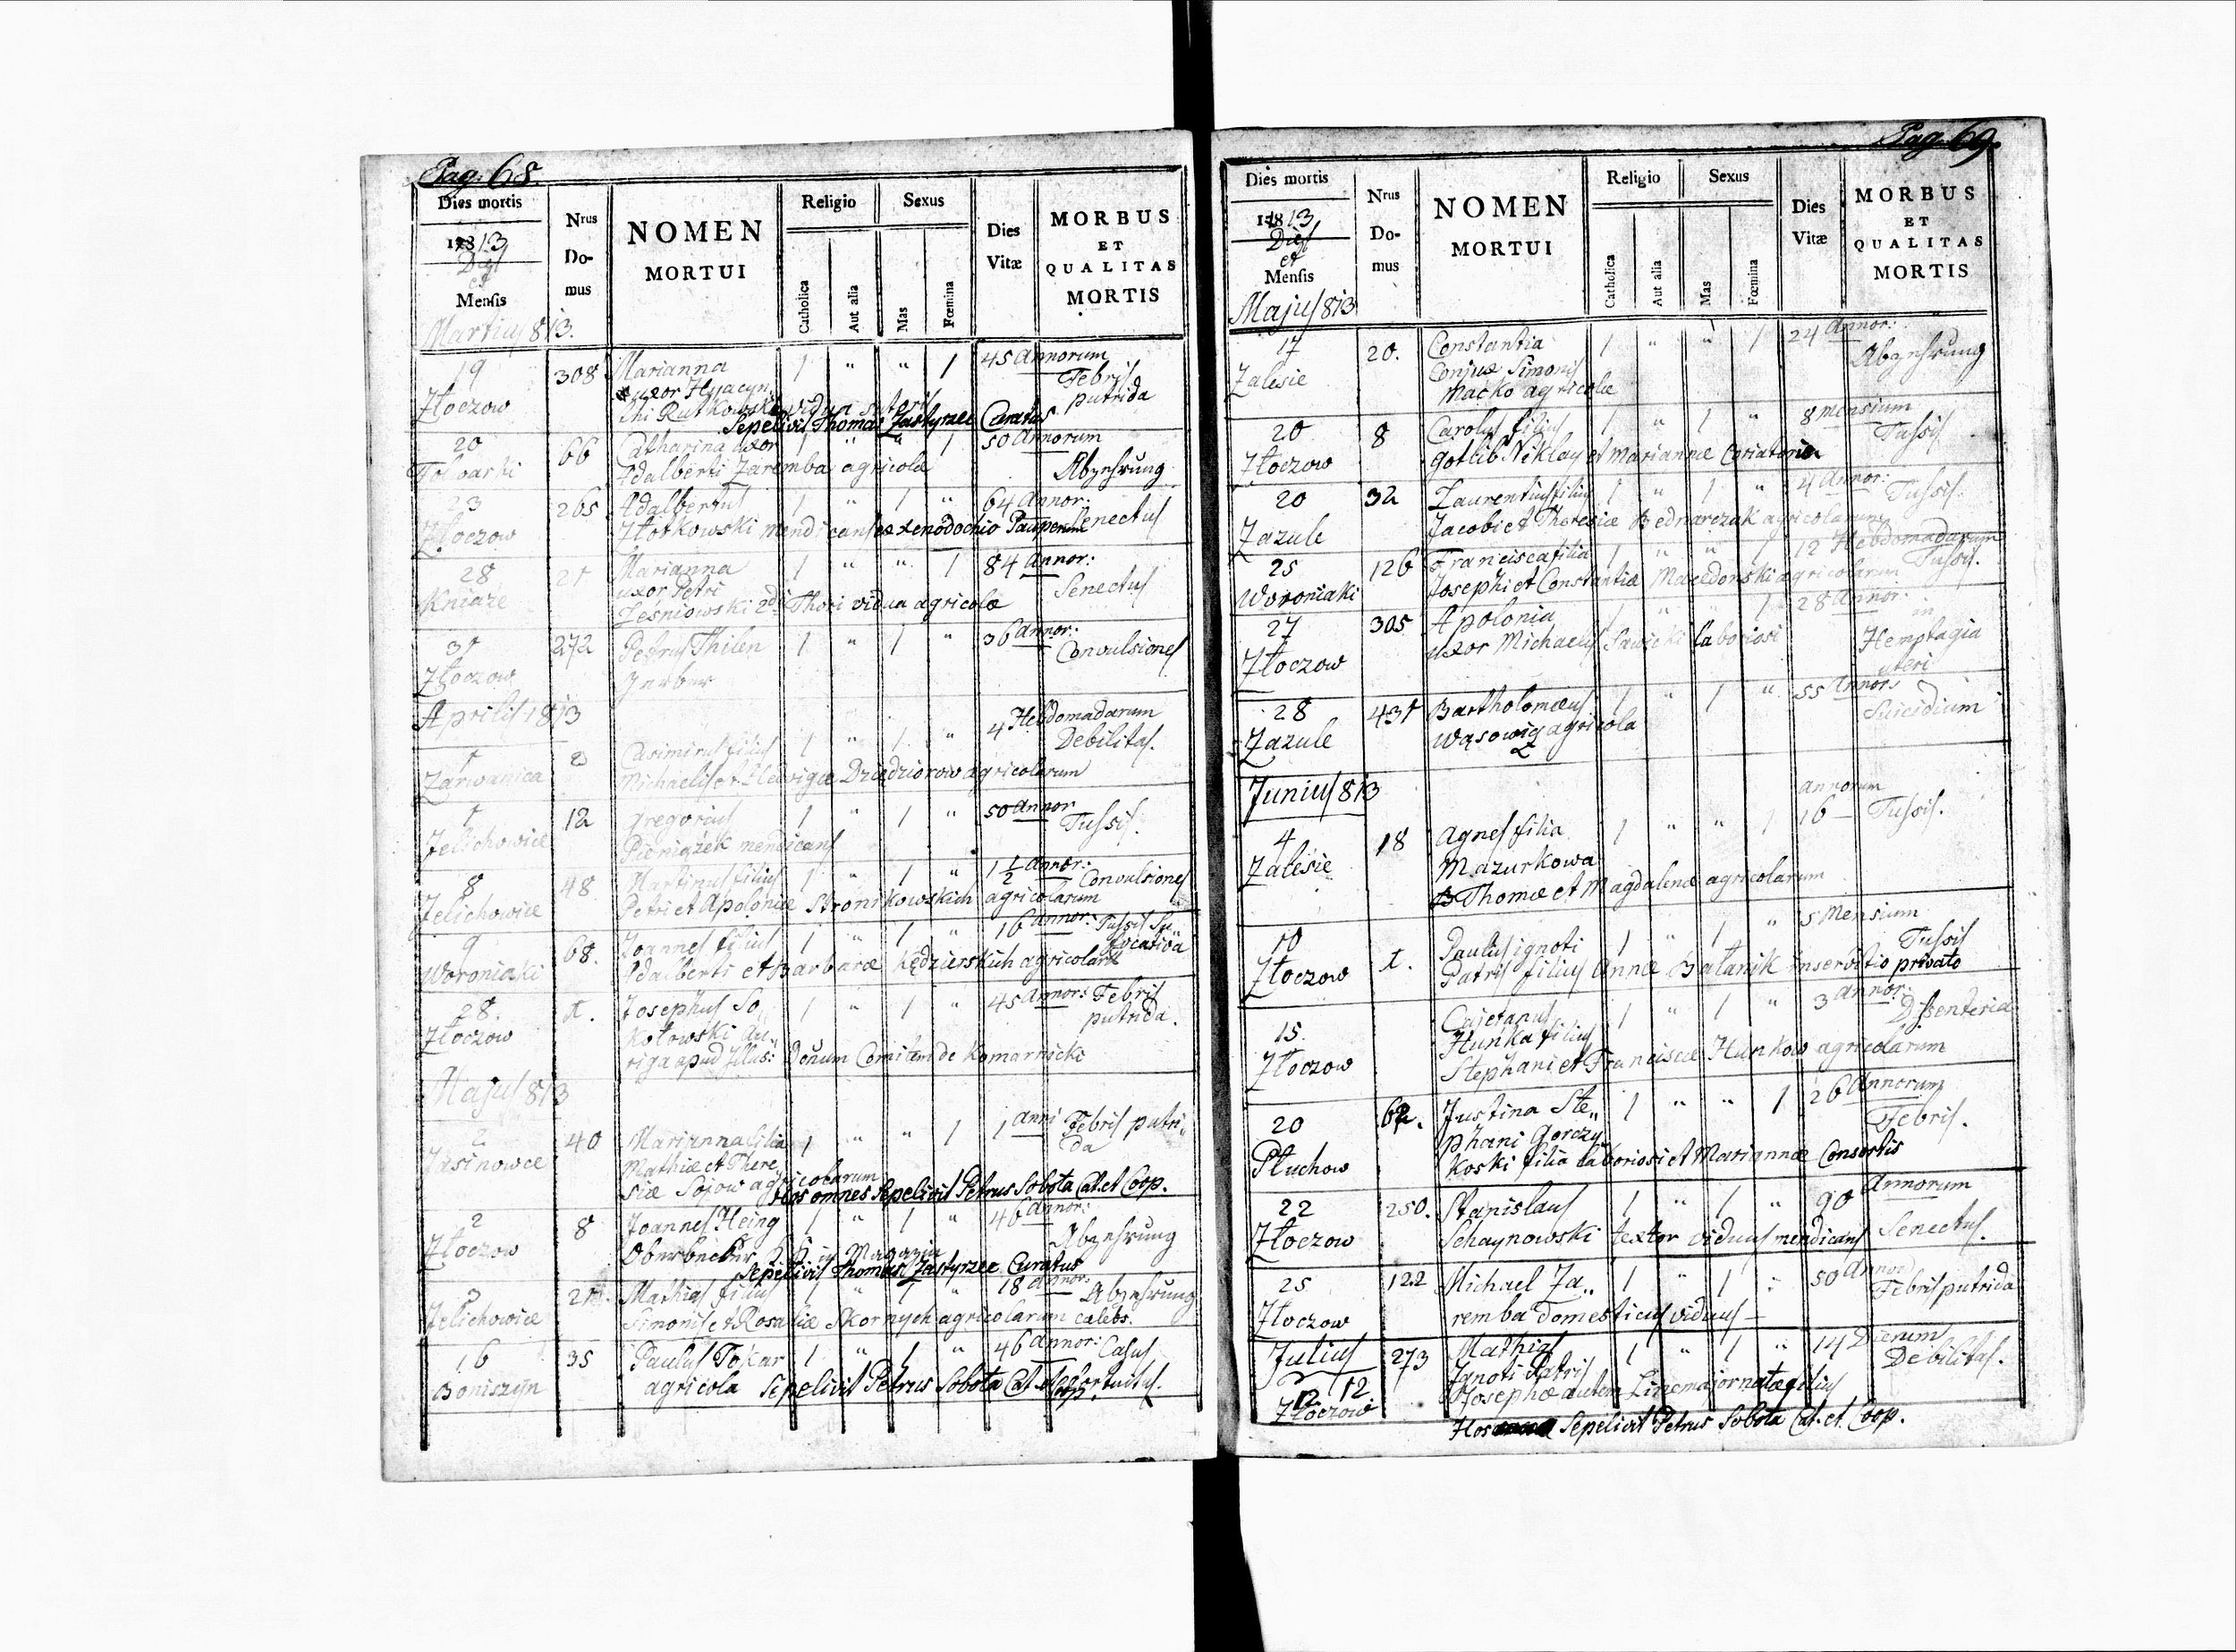 Pag. 68.
Dies mortis
1813
Dies
et
Mensis
Martius 813.
Nrus
Do-
mus
NOMEN
MORTUI
Religio
Catholica
Aut alia
Sexus
Mas
Fœmina
Dies
Vitæ
MORBUS
ET
QUALITAS
MORTIS
19 308 Marianna 1 " " 1 45 Annorum
uxor Hyacyn Febris
Złoczow thi Rutkowski vidua sutoris putrida
Sepelivit Thomas Zastyrzec Curatus
20 66 Catharina uxor 1 " " 1 50 Annorum
Folwarki Adalberti Zaremba agricolæ Abzehrung
23 265 Adalbertus 1 " 1 " 64 Annor:
Złoczow Złotkowski mendicans ex xenodochio Pauperum Senectus
28 Marianna 1 " " 1 84 Annor:
Kniaże uxor Petri Senectus
Leśniowski 2di Thori vidua agricolæ
31 272 Petrus Thilen 1 " 1 " 36 Annor:
Złoczow Gerber Convulsiones
Aprilis 1813
1 2 Casimirus filius 1 " 1 " 4 Hebdomadarum
Zarwanica Michaelis et Hedvigæ Dziedziorow agricolarum Debilitas.
1 12 Gregorius 1 " 1 " 50 Annor
Jelichowice Pieniążek mendicans Tussis.
8 48 Martinus filius 1 " 1 " 1 1/2 Annor: Convulsiones
Jelichowice Petri et Apoloniæ Stronikowskich agricolarum
9 68. Joannes filius 1 " 1 " 16 Annor: Tussis Su„
Woroniaki Adalberti et Barbaræ Kędzierskich agricolarū focativa
28. 1. Josephus So„ 1 " 1 " 45 Annor: Febris
Złoczow kołowski Au„ putrida.
riga apud Illus: Donum Comitem de Komarnicki
Majus 813
2 40 Marianna filia 1 " " 1 1 Anni Febris putri„
Jasinowce Mathiæ et There„ da
siæ Sojow agricolarum
Hos omnes Sepelivit Petrus Sobota Cat. et Coop.
2 8 Joannes Heing 1 " 1 " 46 Annor:
Złoczow Oberbecker Magazin Abzehrung
Sepelivit Thomas Zastyrzec Curatus
3 21. Mathias filius 1 " 1 " 18 Annor: Abzehrung
Jelichowice Simonis et Rosaliæ Skornych agricolarum celebs.
16 35 Paulus Tokar 1 " 1 " 46 Annor: Casus
Boniszyn agricola Sepelivit Petrus Sobota Cat. et Coop. fortuitus.
Pag. 69.
Dies mortis
1813
Dies
et
Mensis
Majus 813
Nrus
Do-
mus
NOMEN
MORTUI
Religio
Catholica
Aut alia
Sexus
Mas
Fœmina
Dies
Vitæ
MORBUS
ET
QUALITAS
MORTIS
17 20. Constantia 1 " " 1 24 Annor:
Zalesie Conjux Simonis Abzehrung
Maćko agricolæ
20 8 Carolus filius 1 " 1 " 8 Mensium
Złoczow Gotlib Niklas et Mariannæ Coriatoris Tussis
20 32 Laurentius filius 1 " 1 " 4 Annor: Tussis.
Zazule Jacobi et Theresiæ Bednarczak agricolarum
25 126 Francisca filia 1 " " 1 12 Hebdomadarum
Woroniaki Josephi et Constantiæ Macedonski agricolarum Tussis.
27 305 Apolonia 1 " " 1 28 Annor: in
Złoczow uxor Michaelis Sawicki laboriosi Hemptagia
uteri
28 431 Bartholomæus 1 " 1 " 55 Annor:
Zazule Wąsowicz agricola Suicidium
Junius 813
4 18 Agnes filia 1 " " 1 16 annorum Tussis.
Zalesie Mazurkowa
Thomæ et Magdalenæ agricolarum
10 1. Paulus ignoti 1 " 1 " 5 Mensium
Złoczow Patris filius Annæ Bałanik in servitio privato Tussis
15. Cajetanus 1 " 1 " 3 Annor:
Złoczow Hunka filius Dissenteria
Stephani et Franciscæ Hunkow agricolarum
20 62. Justina Ste„ 1 " " 1 26 Annorum
Płuchow phani Gorczy„ Febris.
koski filia laboriosi et Mariannæ Consortis
22 250. Stanislaus 1 " 1 " 90 Annorum
Złoczow Schaynowski textor viduus mendicans Senectus.
25 122 Michael Za„ 1 " 1 " 50 Annor
Złoczow remba domesticus viduus — Febris putrida
Julius 273 Mathias 1 " 1 " 14 Dierum
12 12. Ignoti Patris Debilitas.
Złoczow Josephæ autem Linemajor natæ filius
Hos Sepelivit Petrus Sobota Cat. et Coop.